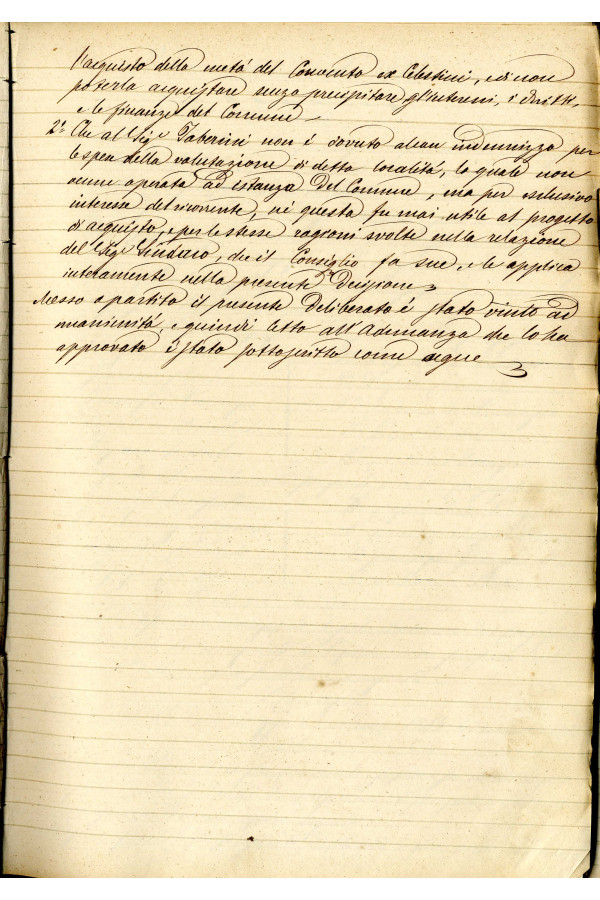 l'acquisto della metà del Convento ex Celestini, e di non
poterla acquistare senza precipitare gl'interessi, i
e le finanze del Comune
2.° Che al Sig.r Taberini non è dovuto alcun indennizzo per
le spese della valutazione di detta località, la quale non
venne operata ad istanza del Comune, ma per esclusivo
interesse del ricorrente, nè questa fu mai utile al progetto
di acquisto, e per le stesse ragioni svolte nella relazione
del Sig.r Sindaco, che il Consiglio fa sue, e le applica
interamente nella presente Decisione
Messo a partito il presente Deliberato è stato vinto ad
unanimità, e quindi letto all'Adunanza che lo ha
approvato è stato sottoscritto come segue